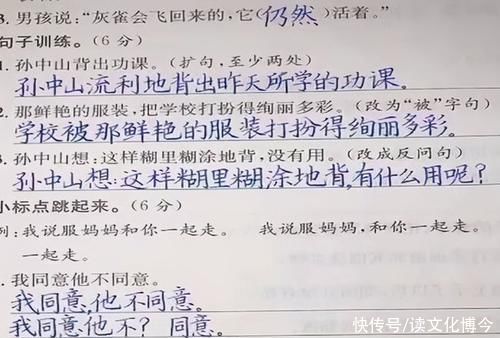 3. 男孩说：“灰雀会飞回来的，它（仍然）活着。”
句子训练。（6 分）
1. 孙中山背出功课。（扩句，至少两处）
孙中山流利地背出昨天所学的功课。
2. 那鲜艳的服装，把学校打扮得绚丽多彩。（改为“被”字句）
学校被那鲜艳的服装打扮得绚丽多彩。
3. 孙中山想：这样糊里糊涂地背，没有用。（改成反问句）
孙中山想：这样糊里糊涂地背，有什么用呢？
小标点跳起来。（6 分）
例：我说服妈妈和你一起走。 我说服妈妈，和你一起走。
一起走。
. 我同意他不同意。
我同意，他不同意。
我同意他不？同意。
快传号/读文化博今